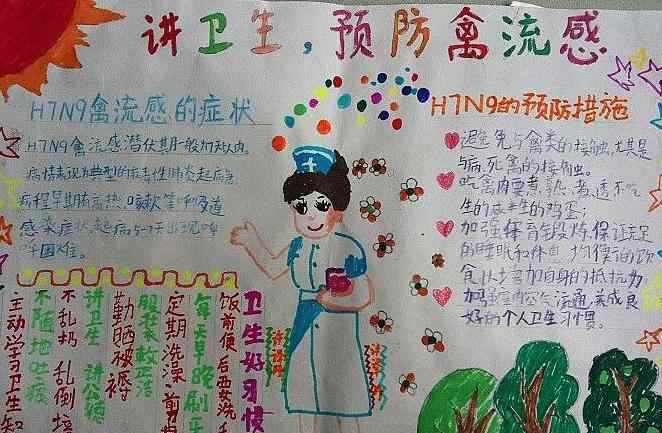 讲卫生，预防禽流感
H7N9禽流感的症状
H7N9禽流感潜伏期一般为7天以内
病情表现为典型的病毒性肺炎起病急
病程早期有高热、咳嗽等呼吸道
感染症状,起病5-7天出现呼
吸困难。
H7N9的预防措施
避免与禽类的接触,尤其是
与病、死禽的接触。
吃禽肉要煮熟、煮透不吃
生的或半生的鸡蛋;
加强体育锻炼,保证充足
的睡眠和休息,均衡的饮
食以增加自身的抵抗力
加强室内空气流通,养成良
好的个人卫生习惯。
卫生好习惯
饭前便后要洗手
每天早晚刷牙
定期洗澡、剪
服装较洁
勤晒被褥
讲卫生 讲公德
不乱扔 乱倒
不随地吐痰
主动学习卫生知